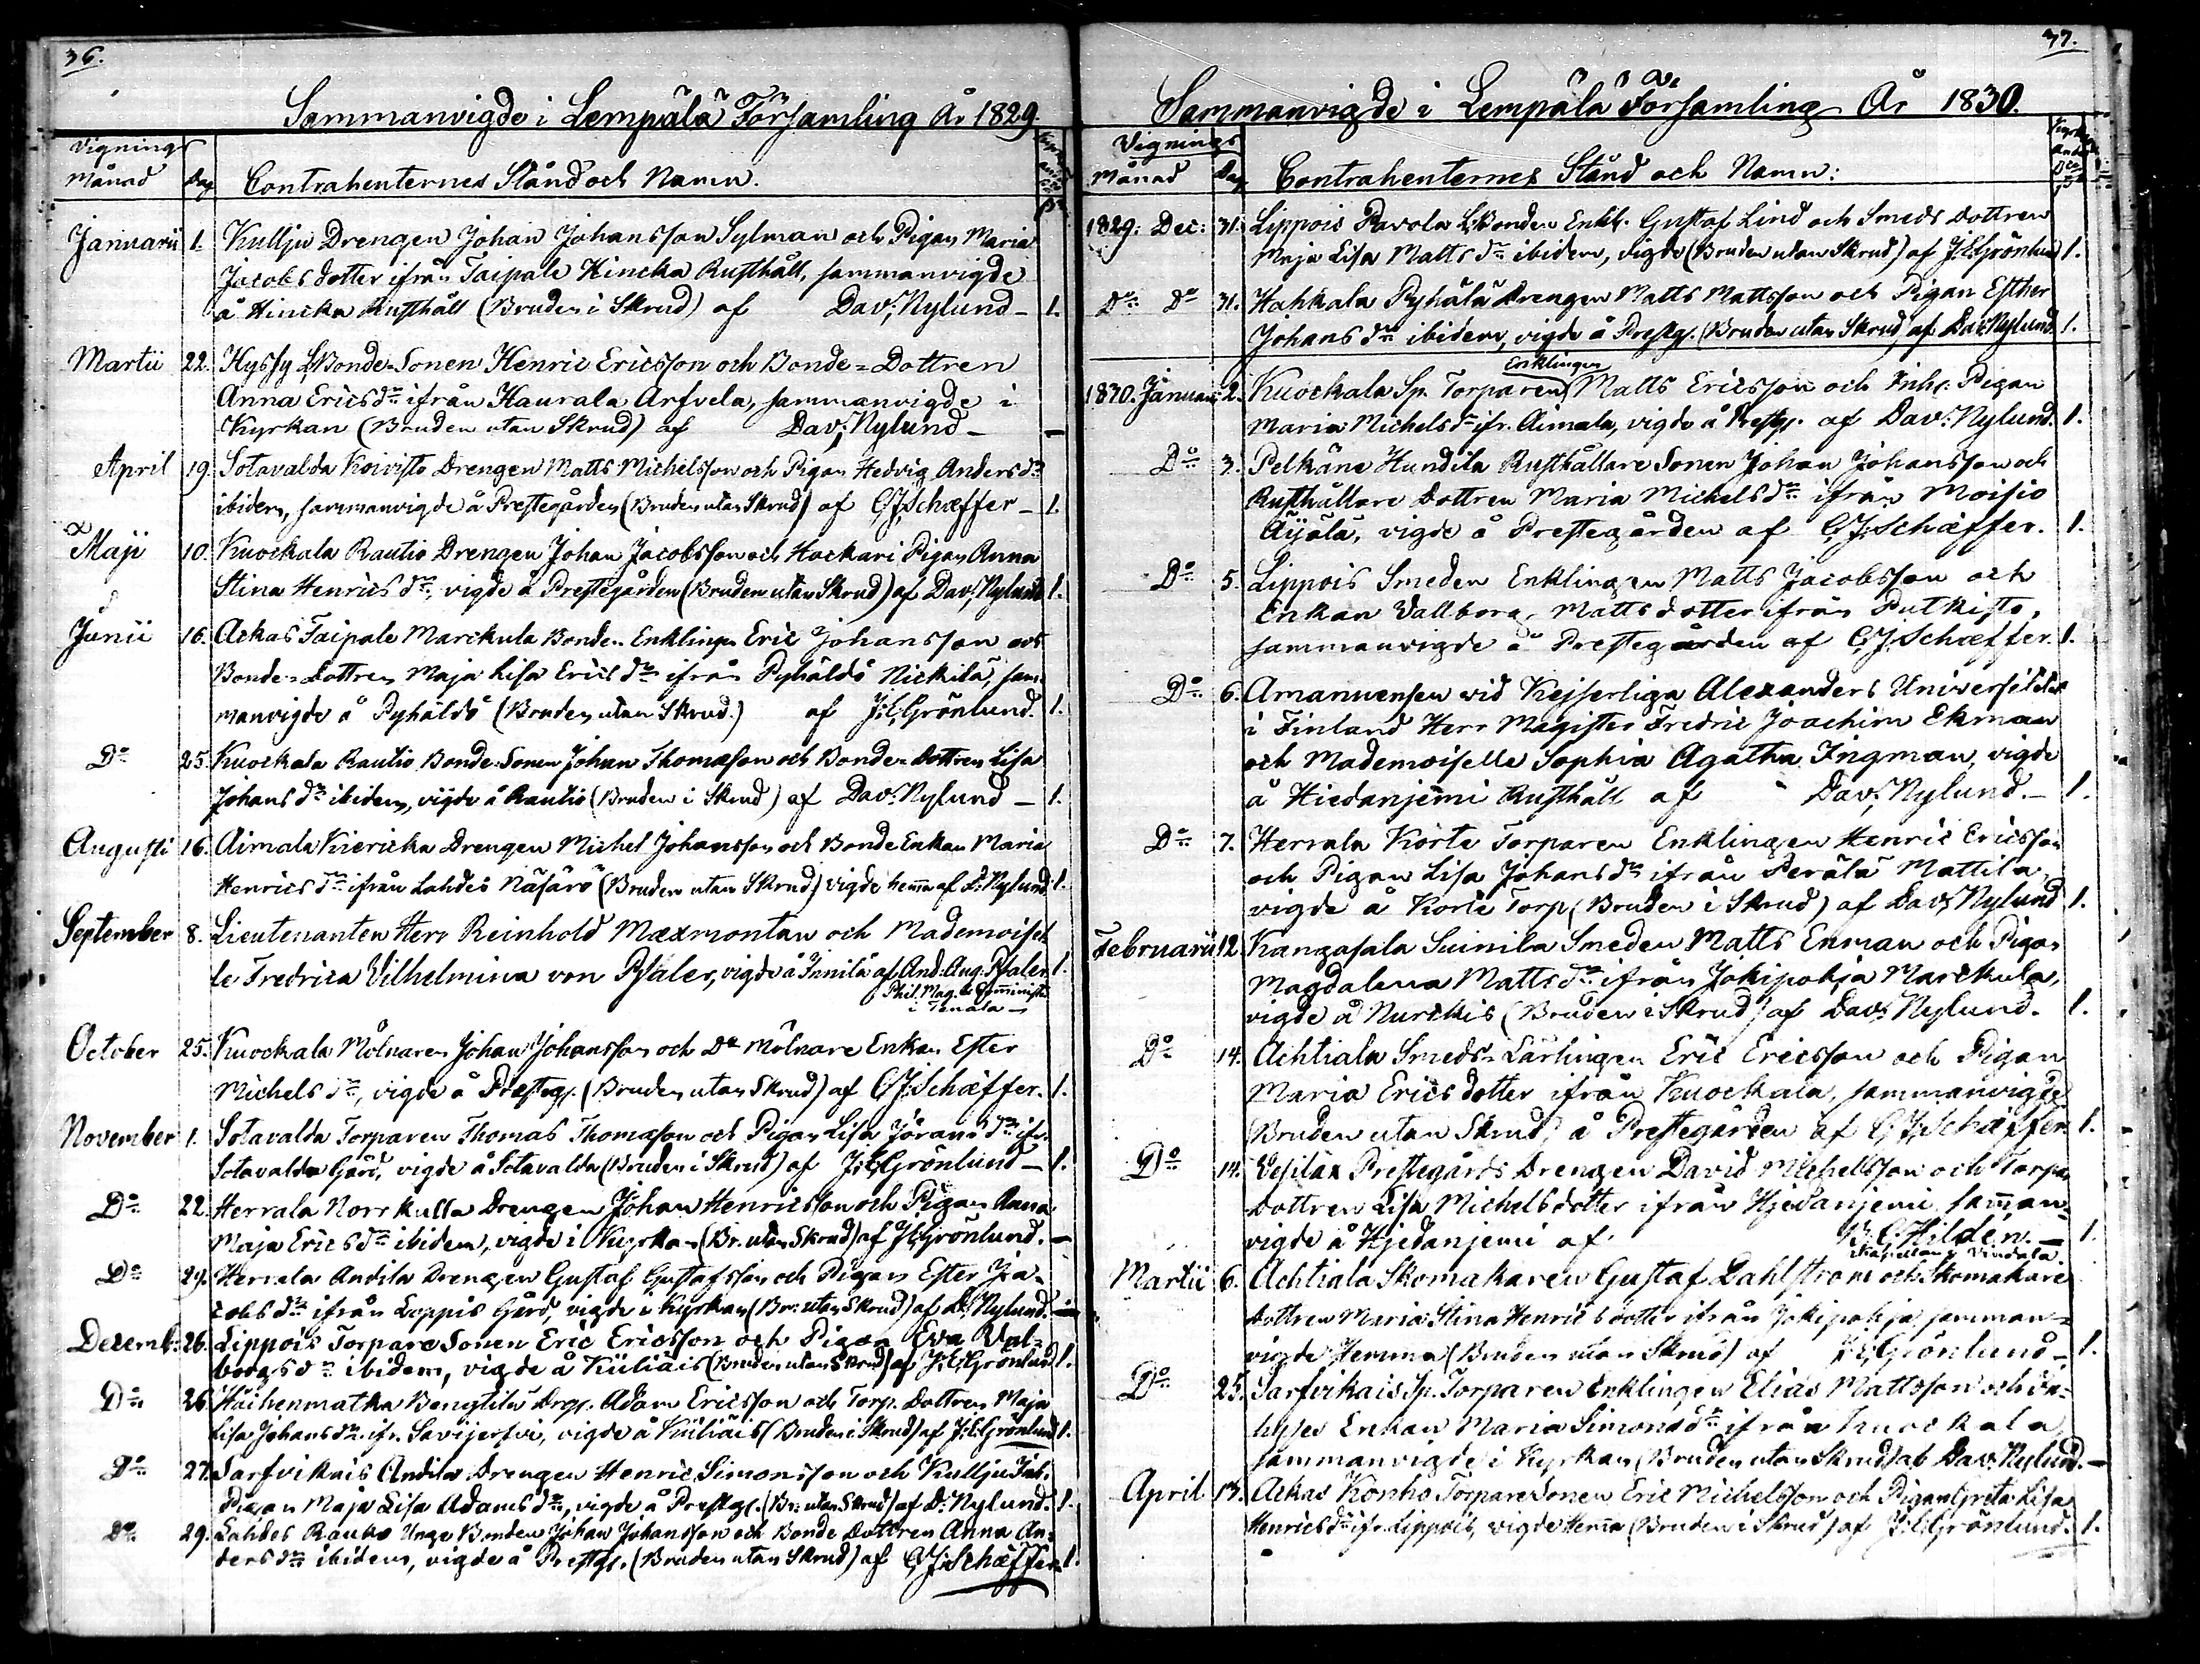 36.
Sammanvigde i Lempälä Församling År 1829.
Vignings
Månad Dag Contrahenternes Stånd och Namn.
Januarii 1. Kullju Drengen Johan Johansson Sylman och Pigan Maria
Jacobsdotter ifrån Taipale Hincka Rusthåll, sammanvigde
å Hincka Rusthåll (Bruden i Skrud) af Dav: Nylund – 1.
Martii 22. Hyssy LBonde-Sonen Henric Ericsson och Bonde-Dottren
Anna Ericsdr ifrån Haurala Arfvela, sammanvigde i
Kyrkan (Bruden utan Skrud) af Dav: Nylund – –
April 19. Sotavalda Koivisto Drengen Matts Michelsson och Pigan Hedvig Andersdr
ibidem, sammanvigde å Prestegården (Bruden utan Skrud) af C.J. Schæffer – 1.
Maji 10. Kuockala Rautio Drengen Johan Jacobsson och Hackari Pigan Anna
Stina Henricsdr, vigde å Prestegården (Bruden utan Skrud) af Dav: Nylund 1.
Junii 16. Ackas Taipale Marckula Bonde-Enklingen Eric Johansson och
Bonde-Dottren Maja Lisa Ericsdr ifrån Pyhäldö Nickilä, sam-
manvigde å Pyhäldö (Bruden utan Skrud.) af J:C:Grönlund. 1.
Do 25. Kuockala Rautio Bonde-Sonen Johan Thomasson och Bonde-Dottren Lisa
Johansdr ibidem, vigde å Rautio (Bruden i Skrud) af Dav: Nylund – 1.
Augusti 16. Aimala Kiericka Drengen Michel Johansson och Bonde Enkan Maria
Henricsdr ifrån Lahdes Näfärö (Bruden utan Skrud) vigde hema af D: Nylund 1.
September 8. Lieutenanten Herr Reinhold Mæxmontan och Mademoisel
le Fredrica Vilhelmina von Pfaler, vigde å Innilä af And: Aug: Pfaler. 1.
Phil. Mag. &
i Tenala –
October 25. Kuockala Mölnaren Johan Johansson och Do Mölnare Enkan Ester
Michelsdr, vigde å Presteg. (Bruden utan Skrud) af C.J: Schæffer. 1.
November 1. Sotavalda Torparen Thomas Thomasson och Pigan Lisa Göransdr ifr.
Sotavalda Gård, vigde å Sotavalda (Bruden i Skrud) af J:C:Grönlund – 1.
Do 22. Herrala Norrkulla Drengen Johan Henricsson och Pigan Anna
Maja Ericsdr ibidem, vigde i Kyrkan (Br. utan Skrud) af J:C:Grönlund. –
Do 29. Herrala Andila Drengen Gustaf Gustafsson och Pigan Ester Ja-
cobsdr ifrån Loppis Gård, vigde i Kyrkan (Br: utan Skrud) af D: Nylund. –
Decemb: 26. Lippois Torpare Sonen Eric Ericsson och Pigan Eva Val-
borgsdr ibidem, vigde å Küliäis (Bruden utan Skrud) af J:C:Grönlund 1.
Do 26. Häihenmatka Bengtilä Drg. Adam Ericsson och Torp. Dottren Maja
Lisa Johansdr ifr. Savijerfvi, vigde å Küliäis (Bruden i Skrud) af J:C:Grönlund 1.
Do 27. Sarfvikais Andila Drengen Henric Simonsson och Kullju Inh.
Pigan Maja Lisa Adamsdr, vigde å Presteg. (Br: utan Skrud) af D: Nylund. 1.
Do 29. Lahdes Rauko Unge Bonden Johan Johansson och Bonde Dottren Anna An-
dersdr ibidem, vigde å Presteg. (Bruden utan Skrud) af C.J: Schæffer 1.
37.
Sammanvigde i Lempälä Församling År 1830.
Vignings
Månad Dag Contrahenternes Stånd och Namn:
1829: Dec: 31. Lippois Pavola LBonden Enkl. Gustaf Lind och Smeds Dottren
Maja Lisa Mattsdr ibidem, vigde (Bruden utan Skrud) af J:C:Grönlund 1.
Do Do 31. Hahkala Pyhälä Drengen Matts Mattsson och Pigan Esther
Johansdr ibidem, vigde å Presteg. (Bruden utan Skrud) af Dav: Nylund. 1.
Enklingen
1830. Januarii 2. Kuockala Sp. Torparen Matts Ericsson och Inh: Pigan
Maria Michelsdr ifr. Aimala, vigde å Presteg. af Dav: Nylund. 1.
Do 3. Pelkäne Hundila Rusthållare Sonen Johan Johansson och
Rusthållare Dottren Maria Michelsdr ifrån Moisio
Äijälä, vigde å Prestegården af C.J: Schæffer. 1.
Do 5. Lippois Smeden Enklingen Matts Jacobsson och
Enkan Vallborg Mattsdotter ifrån Putkisto,
sammanvigde å Prestegården af C.J. Schæffer. 1.
Do 6. Amanuensen vid Kejserliga Alexanders Universitetet
i Finland Herr Magister Fredric Joachim Ekman
och Mademoiselle Sophia Agatha Ingman, vigde
å Hiedanjemi Rusthåll af Dav: Nylund. – 1.
Do 7. Herrala Körte Torparen Enklingen Henric Ericsson
och Pigan Lisa Johansdr ifrån Perälä Mattila,
vigde å Körte Torp (Bruden i Skrud) af Dav: Nylund 1.
Februarii 12. Kangasala Suinila Smeden Matts Enman och Pigan
Magdalena Mattsdr ifrån Jokipohja Marckula,
vigde å Nurckis (Bruden i Skrud) af Dav: Nylund. 1.
Do 14. Achtiala Smeds-Lärlingen Eric Ericsson och Pigan
Maria Ericsdotter ifrån Kuockala, sammanvigde
(Bruden utan Skrud) å Prestegården af C.J: Schæffer. 1.
Do 14. Vesilax Prestegårds Drengen David Michelsson och Torpar
Dottren Lisa Michelsdotter ifrån Hjedanjemi samman-
vigde å Hjedanjemi af C. Hildén. – 1.
Kapellan i Vindala
Martii 6. Achtiala Skomakaren Gustaf Dahlström och Skomakare
Dottren Maria Stina Henricsdotter ifrån Jokipohja samman-
vigde Hemma (Bruden utan Skrud) af J:C:Grönlund – 1.
Do 25. Sarfvikais Sp. Torparen Enklingen Elias Mattsson och In-
hyses Enkan Maria Simonsdr ifrån Kuockala
sammanvigde i Kyrkan (Bruden utan Skrud) af Dav: Nylund. –
April 13. Ackas Konho Torpare Sonen Eric Michelsson och Pigan Greta Lisa
Henricsdr ifr. Lippois, vigde Hema (Bruden i Skrud) af J:C:Grönlund. 1.